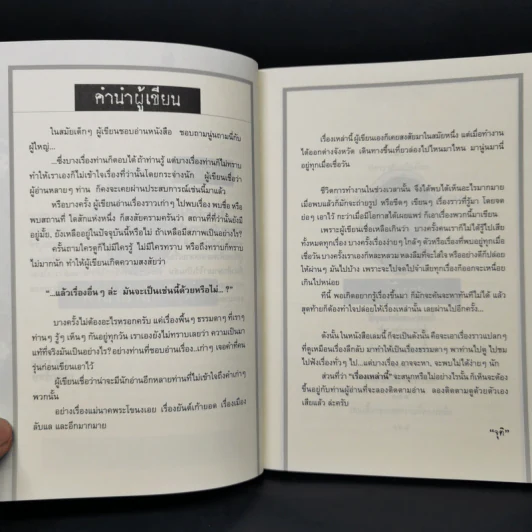 คำนำผู้เขียน
ในสมัยเด็กๆ ผู้เขียนชอบอ่านหนังสือ ชอบถามนู่นถามนี่กับ
ผู้ใหญ่...
...ซึ่งบางเรื่องท่านก็ตอบได้ ถ้าท่านรู้ แต่บางเรื่องท่านก็ไม่ทราบ
ทำให้เราเองก็ไม่เข้าใจเรื่องที่ว่านั้นโดยกระจ่างนัก ผู้เขียนเชื่อว่า
ผู้อ่านหลายๆ ท่าน ก็คงจะเคยผ่านประสบการณ์เช่นนี้มาแล้ว
หรือบางครั้ง ผู้เขียนอ่านเรื่องราวเก่าๆ ไปพบเรื่อง พบชื่อ หรือ
พบสถานที่ ใดสักแห่งหนึ่ง ก็สงสัยครามครันว่า สถานที่ที่ว่านั้นยังมี
อยู่มั้ย.. ยังเหลืออยู่ในปัจจุบันนี้หรือไม่ ถ้าเหลือมีสภาพเป็นอย่างไร?
ครั้นถามใครดูก็ไม่มีใครรู้ ไม่มีใครทราบ หรือถึงทราบก็ทราบ
ไม่มากนัก ทำให้ผู้เขียนเกิดความสงสัยว่า
"...แล้วเรื่องอื่นๆ ล่ะ มันจะเป็นเช่นนี้ด้วยหรือไม่.. ?"
บางครั้งไม่ต้องอะไรหรอกครับ แค่เรื่องพื้นๆ ธรรมดาๆ ที่เราๆ
ท่านๆ รู้ๆ เห็นๆ กันอยู่ทุกวัน เราเองยังไม่ทราบเลยว่า ความเป็นมา
แท้ที่จริงมันเป็นอย่างไร? อย่างท่านที่ชอบอ่านเรื่อง...เก่าๆ เจอคำที่คน
รุ่นก่อนเขียนเอาไว้
ผู้เขียนเชื่อว่าน่าจะมีนักอ่านอีกหลายท่านที่ไม่เข้าใจถึงคำเก่าๆ
พวกนั้น
อย่างเรื่องแม่นาคพระโขนงเอย เรื่องยันต์เก้ายอด เรื่องเมือง
ลับแล และอีกมากมาย
เรื่องเหล่านี้ ผู้เขียนเองก็เคยสงสัยมาในสมัยหนึ่ง แต่เมื่อทำงาน
ได้ออกต่างจังหวัด เดินทางขึ้นเหนือล่องไปไหนมาไหน มานู่นมานี่
อยู่ทุกเมื่อเชื่อวัน
ชีวิตการทำงานในช่วงเวลานั้น จึงได้พบได้เห็นอะไรมากมาย
เมื่อพบแล้วก็มักจะถ่ายรูป หรือขีดๆ เขียนๆ เรื่องราวที่รู้มา โดยจด
ย่อๆ เอาไว้ กะว่าเมื่อมีโอกาสได้เผยแพร่ ก็เอาเรื่องพวกนี้มาเขียน
เพราะผู้เขียนเชื่อเหลือเกินว่า บางครั้งคนเราก็ไม่ได้รู้ไปเสีย
ทั้งหมดทุกเรื่อง บางครั้งเรื่องง่ายๆ ใกล้ๆ ตัวหรือเรื่องที่พบอยู่ทุกเมื่อ
เชื่อวัน บางครั้งเราเองก็หละหลวม หลงลืมที่จะใส่ใจ หรืออย่างดีก็ปล่อย
ให้ผ่านๆ มันไปบ้าง เพราะจะไปจดไปจำเสียทุกเรื่องก็ออกจะเหนื่อย
เกินไปหน่อย
ทีนี้ พอเกิดอยากรู้เรื่องขึ้นมา ก็มักจะค้นจะหาทันทีไม่ได้ แล้ว
สุดท้ายก็ต้องทำใจปล่อยให้เรื่องเหล่านั้น เลยผ่านไปอีกครั้ง...
ดังนั้น ในหนังสือเล่มนี้ ก็จะเป็นดังนั้น คือจะเอาเรื่องราวแปลกๆ
ที่ดูเหมือนเรื่องลึกลับ มาทำให้เป็นเรื่องธรรมดาๆ พาท่านไปดู ไปชม
ไปฟังเรื่องทั่วๆ ไป...แต่บางเรื่อง อาจจะหา, จะพบไม่ได้ง่าย ๆ นัก
ส่วนที่ว่า "เรื่องเหล่านี้" จะสนุกหรือไม่อย่างไรนั้น ก็เห็นจะต้อง
ขึ้นอยู่กับผู้อ่านที่จะลองติดตามอ่าน ลองติดตามดูด้วยตัวเอง
เสียแล้ว ล่ะครับ